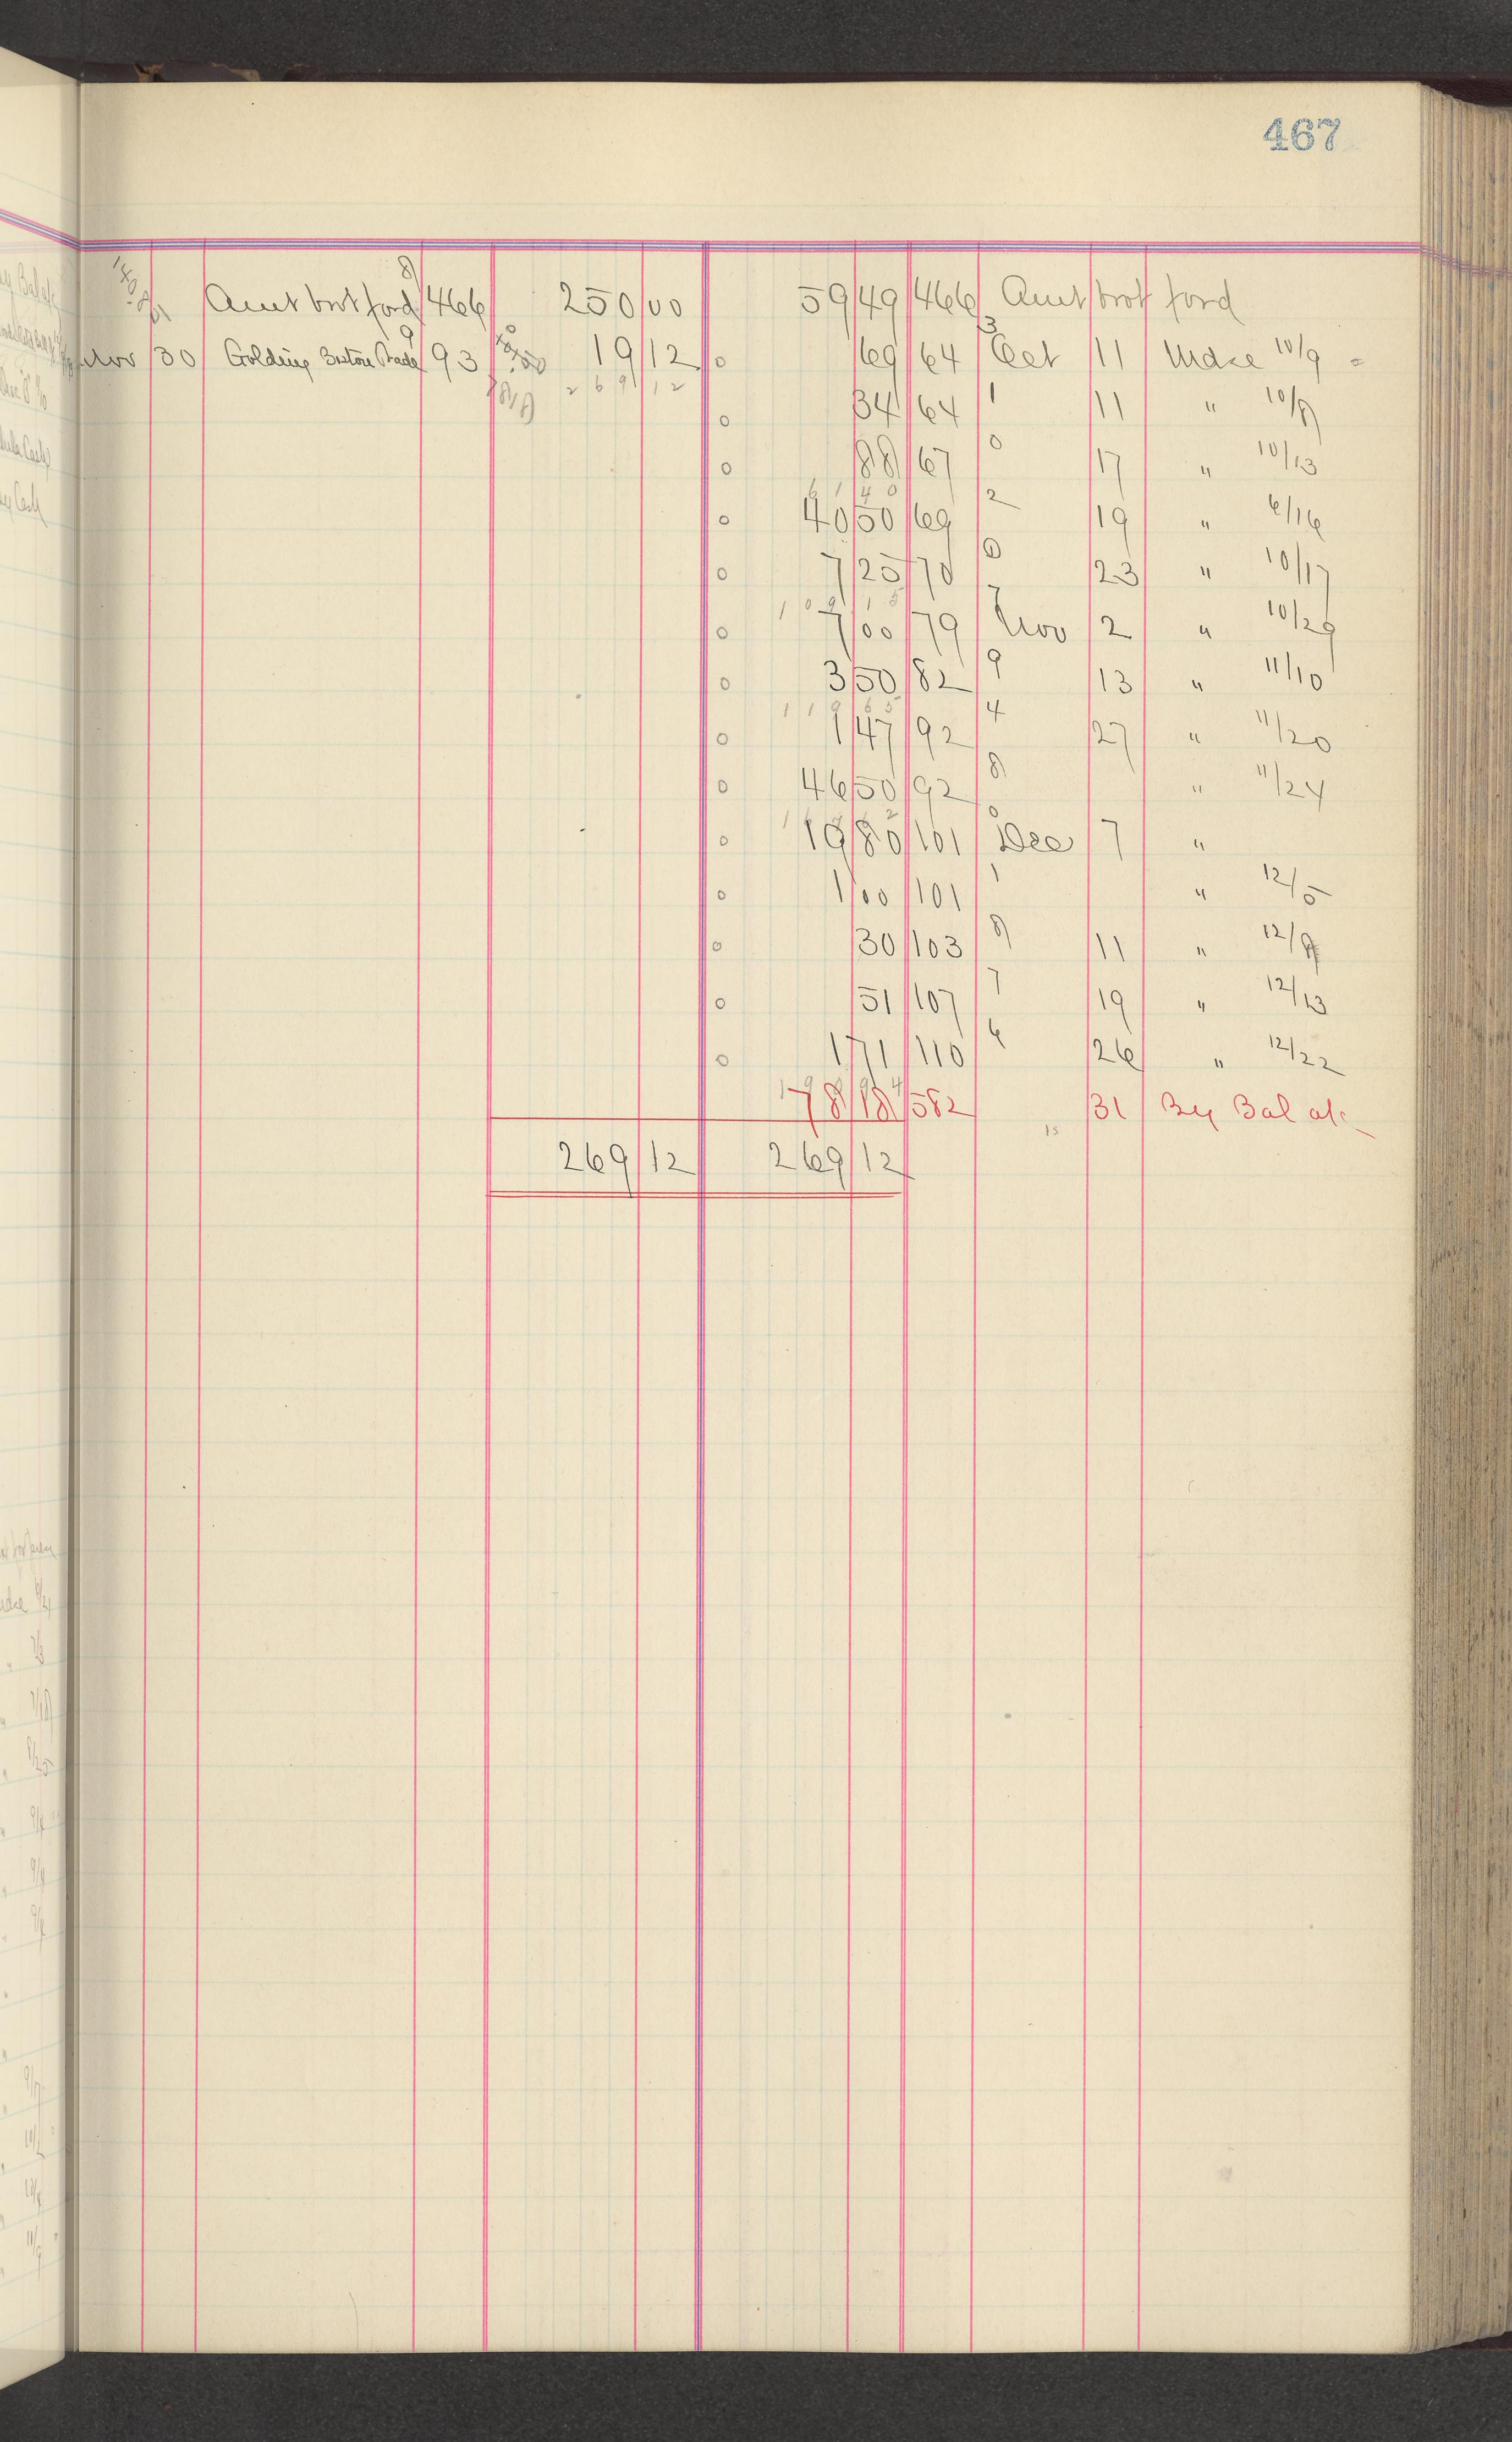 467
Amt brot ford 466 250 00 59 49 466 Amt brot ford
Nov 30 Golding 93 19 12 69 64 Oct 11 Mdse 10/9
269 12
34 64 11 " 10/8
88 67 17 " 10/13
61 40
40 50 69 19 " 6/16
7 25 70 23 " 10/17
109 15
7 00 79 Nov 2 " 10/29
3 50 82 13 " 11/10
119 65
1 47 92 27 " 11/20
46 50 92 " 11/24
19 80 101 Dec 7 "
1 00 101 " 12/5
30 103 11 " 12/9
51 107 19 " 12/13
1 71 110 26 " 12/22
78 18 582 31 By Bal
269 12 269 12